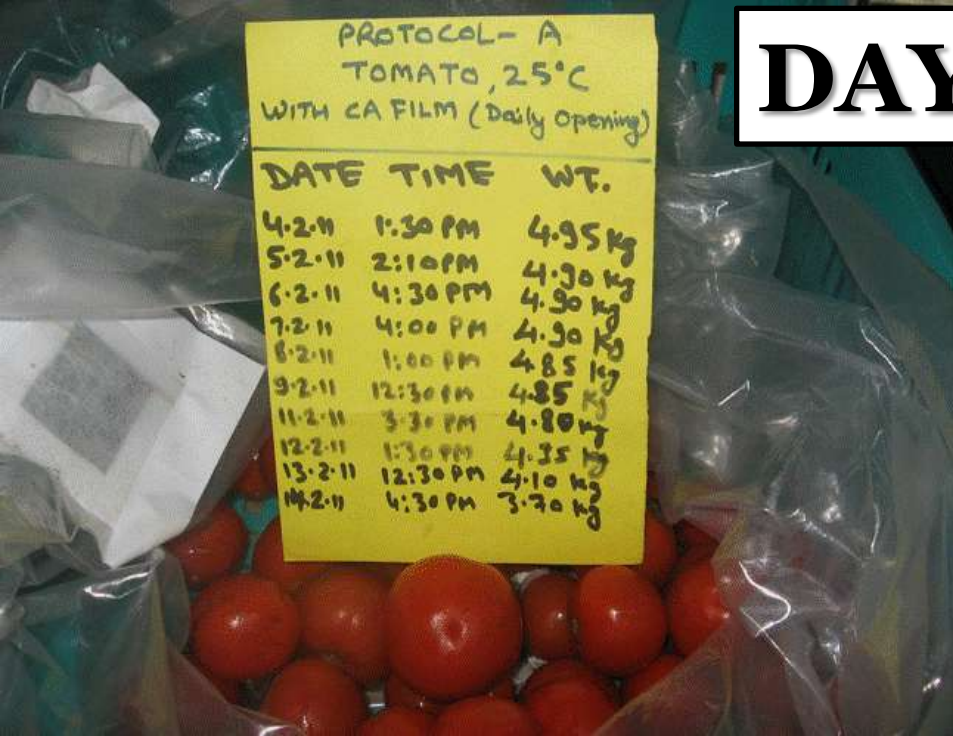 DAY
PROTOCOL- A
TOMATO, 25°C
WITH CA FILM (Daily opening)
DATE TIME WT.
4.2.11 1:30 PM 4.95 kg
5.2.11 2:10 PM 4.90 kg
6.2.11 4:30 PM 4.90 kg
7.2.11 4:00 PM 4.90 kg
8.2.11 1:00 PM 4.85 kg
9.2.11 12:30 PM 4.85 kg
11.2.11 3:30 PM 4.80 kg
12.2.11 1:30 PM 4.35 kg
13.2.11 12:30 PM 4.10 kg
14.2.11 4:30 PM 3.70 kg